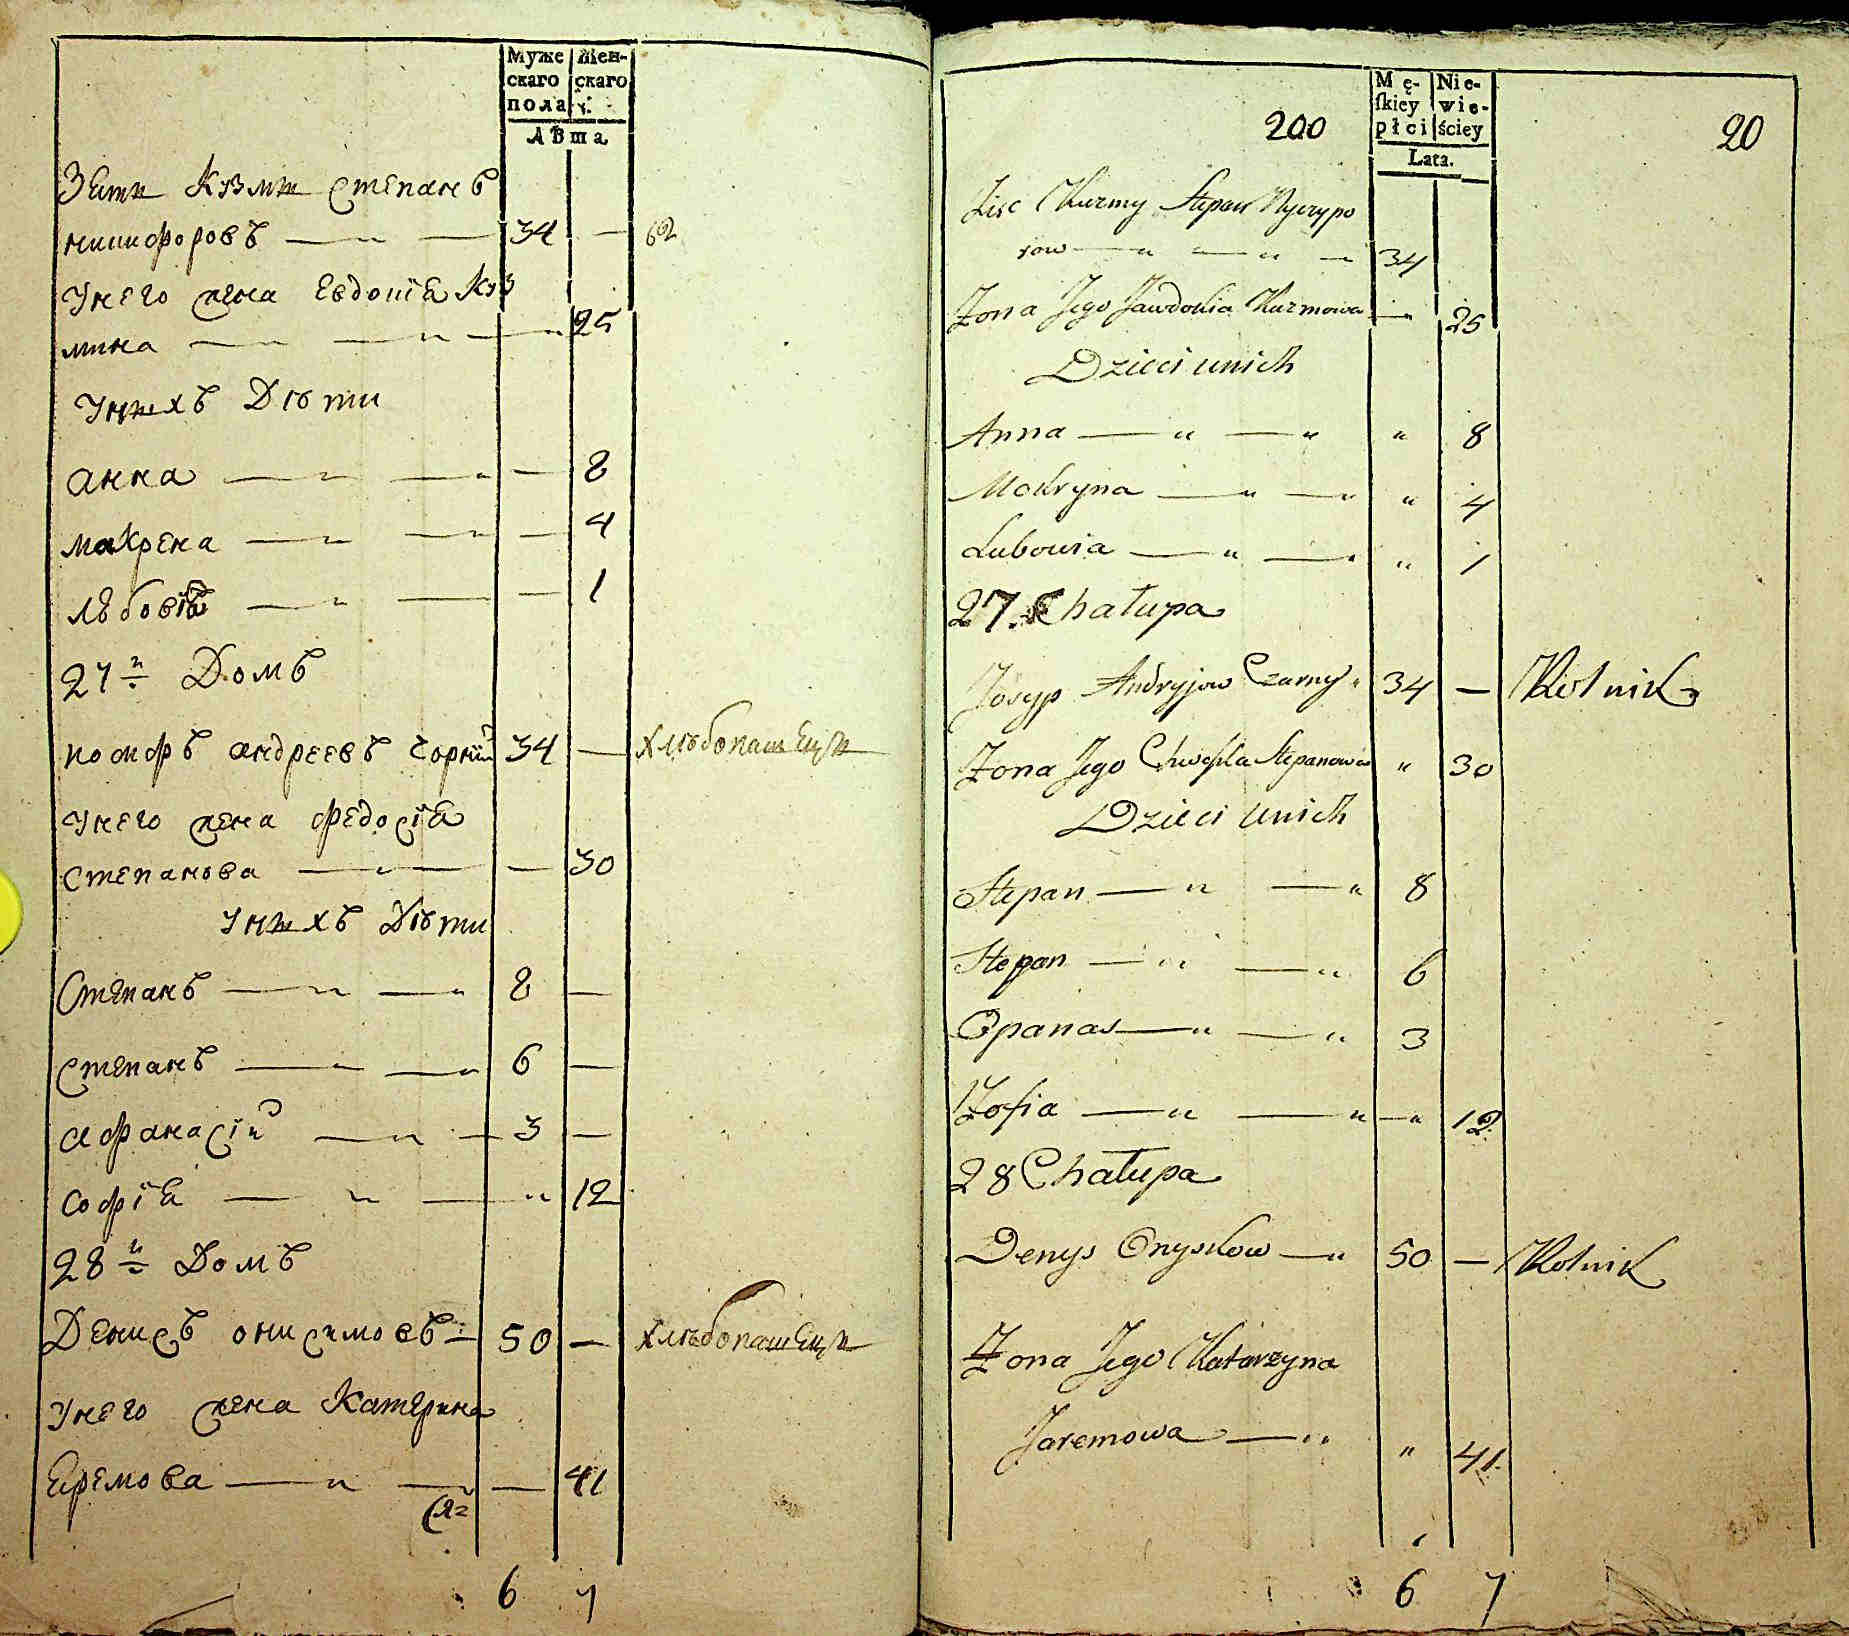 Муже скаго пола
Жен- скаго
Лѣта
Зять Кузмы Степанъ
никифоровъ 34 — 62
Унего жена Евдокїя Куз
мина — 25
Унихъ Дѣти
анна — 8
макрена — 4
любовїя — 1
27й Домъ
иосифъ андреевъ Чорный 34 — хлѣбопашецъ
Унего жена федосїя
степанова — 30
Унихъ Дѣти
Степанъ 8 —
степанъ 6 —
афанасїй 3 —
софїя 12
28й Домъ
Денисъ онисимовъ 50 — хлѣбопашецъ
Унего жена Катерина
Еремова — 41
6 7
200
Mę- skiey płci
Nie- wie- ściey
Lata.
20
Zięc Kuzmy Stepan Nyczypo
row 34
Zona Jego Jawdokia Kuzmowa — 25
Dzieci unich
Anna " 8
Mokryna " 4
Lubowia " 1
27. Chałupa
Josyp Andryjow Czarny 34 — Rolnik
Zona Jego Chweśka Stepanowa " 30
Dzieci unich
Stepan 8
Stepan 6
Opanas 3
Zofia — " 12
28 Chałupa
Denys Onyskow 50 — Rolnik
Zona Jego Katarzyna
Jaremowa " 41
6 7